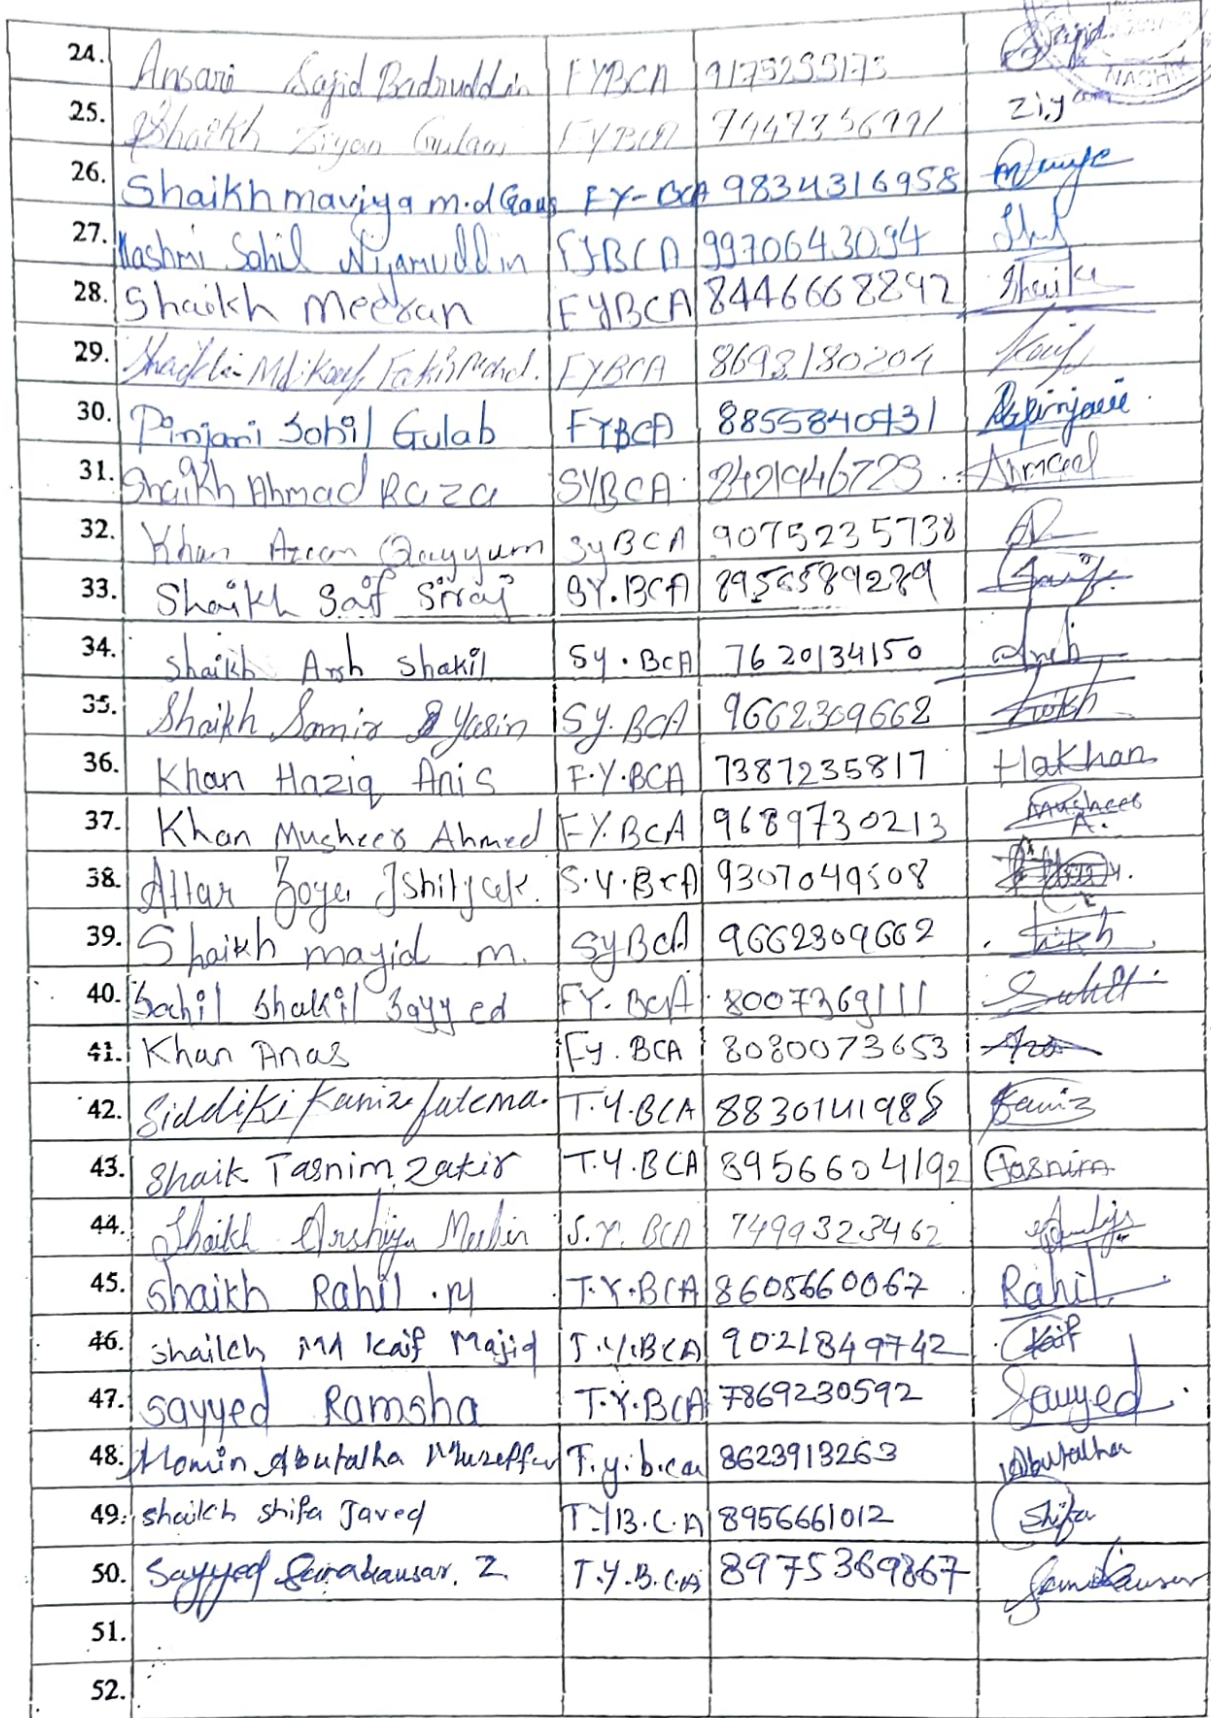 NASHIK
24. Ansari Sajid Badruddin FYBCA 9175233173 Sajid
25. Shaikh Ziyan Gulam FYBCA 7447336991 Ziyan
26. Shaikh maviya m.d Gaus FY-BCA 9834316958
27. Hashmi Sahil Niyamuddin FYBCA 9970643094
28. Shaikh Meeran FYBCA 8446668892 Shaikh
29. Shaikh Md. Kaif Fakir Mohd. FYBCA 8693180204 Kaif
30. Pinjari Sohil Gulab FYBCA 8855840431
31. Shaikh Ahmad Raza SYBCA 8421946723 Ahmad
32. Khan Azeem Qayyum SyBCA 9075235738
33. Shaikh Saif Siraj SY.BCA 8956589289 Saif
34. Shaikh Arsh Shakil Sy.BCA 7620134150
35. Shaikh Samir Yasin Sy.BCA 9662309662
36. Khan Haziq Anis F.Y.BCA 7387235817 HaKhan
37. Khan Musheer Ahmed FY.BCA 9689730213 Musheer A.
38. Attar Zoya Ishtiyak. S.Y.BCA 9307049508
39. Shaikh mayid m. SyBCA 9662309662
40. Sahil Shakil Sayyed FY.BCA 8007369111
41. Khan Anas Fy.BCA 8080073653
42. Siddiki Kaniz fatema. T.Y.BCA 8830141988 Kaniz
43. Shaik Tasnim Zakir T.Y.BCA 8956604192 Tasnim
44. Shaikh Arshiya Mubin S.Y.BCA 7499323462
45. Shaikh Rahil .M T.Y.BCA 8605660067 Rahil
46. Shaikh Md Kaif Majid T.Y.BCA 9021849742 Kaif
47. Sayyed Ramsha T.Y.BCA 7869230592 Sayyed
48. Momin Abutalha Muzaffar T.y.b.ca 8623913263 Abutalha
49. Shaikh Shifa Javed T.Y.B.C.A 8956661012 Shifa
50. Sayyed Sarakausar. Z T.Y.B.C.A 8975369867
51.
52.